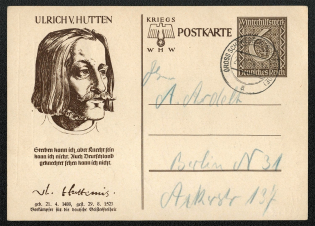 ULRICH V. HUTTEN
Sterben kann ich, aber Knecht sein
kann ich nicht. Auch Deutschland
geknechtet sehen kann ich nicht.
geb. 21. 4. 1488, gest. 29. 8. 1523
Vorkämpfer für die deutsche Geistesfreiheit
KRIEGS
WHW
POSTKARTE
Winterhilfswerk
6
Deutsches Reich
Berlin N 31